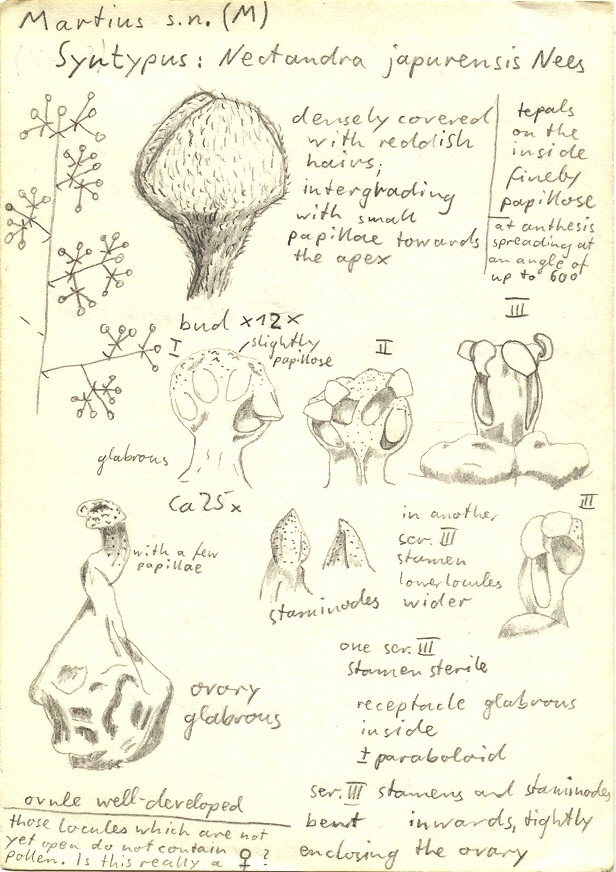 Martius s.n. (M)
Syntypus: Nectandra japurensis Nees
densely covered
with reddish
hairs;
intergrading
with small
papillae towards
the apex
tepals
on the
inside
finely
papillose
at anthesis
spreading at
an angle of
up to 60°
bud ×12×
I
slightly
papillose
II
III
glabrous
ca 25×
with a few
papillae
staminodes
in another
scr. III
stamen
lower locules
wider
III
one scr. III
stamen sterile
ovary
glabrous
receptacle glabrous
inside
± paraboloid
ovule well-developed
those locules which are not
yet open do not contain
pollen. Is this really a ♀?
ser. III stamens and staminodes
bent inwards, tightly
enclosing the ovary